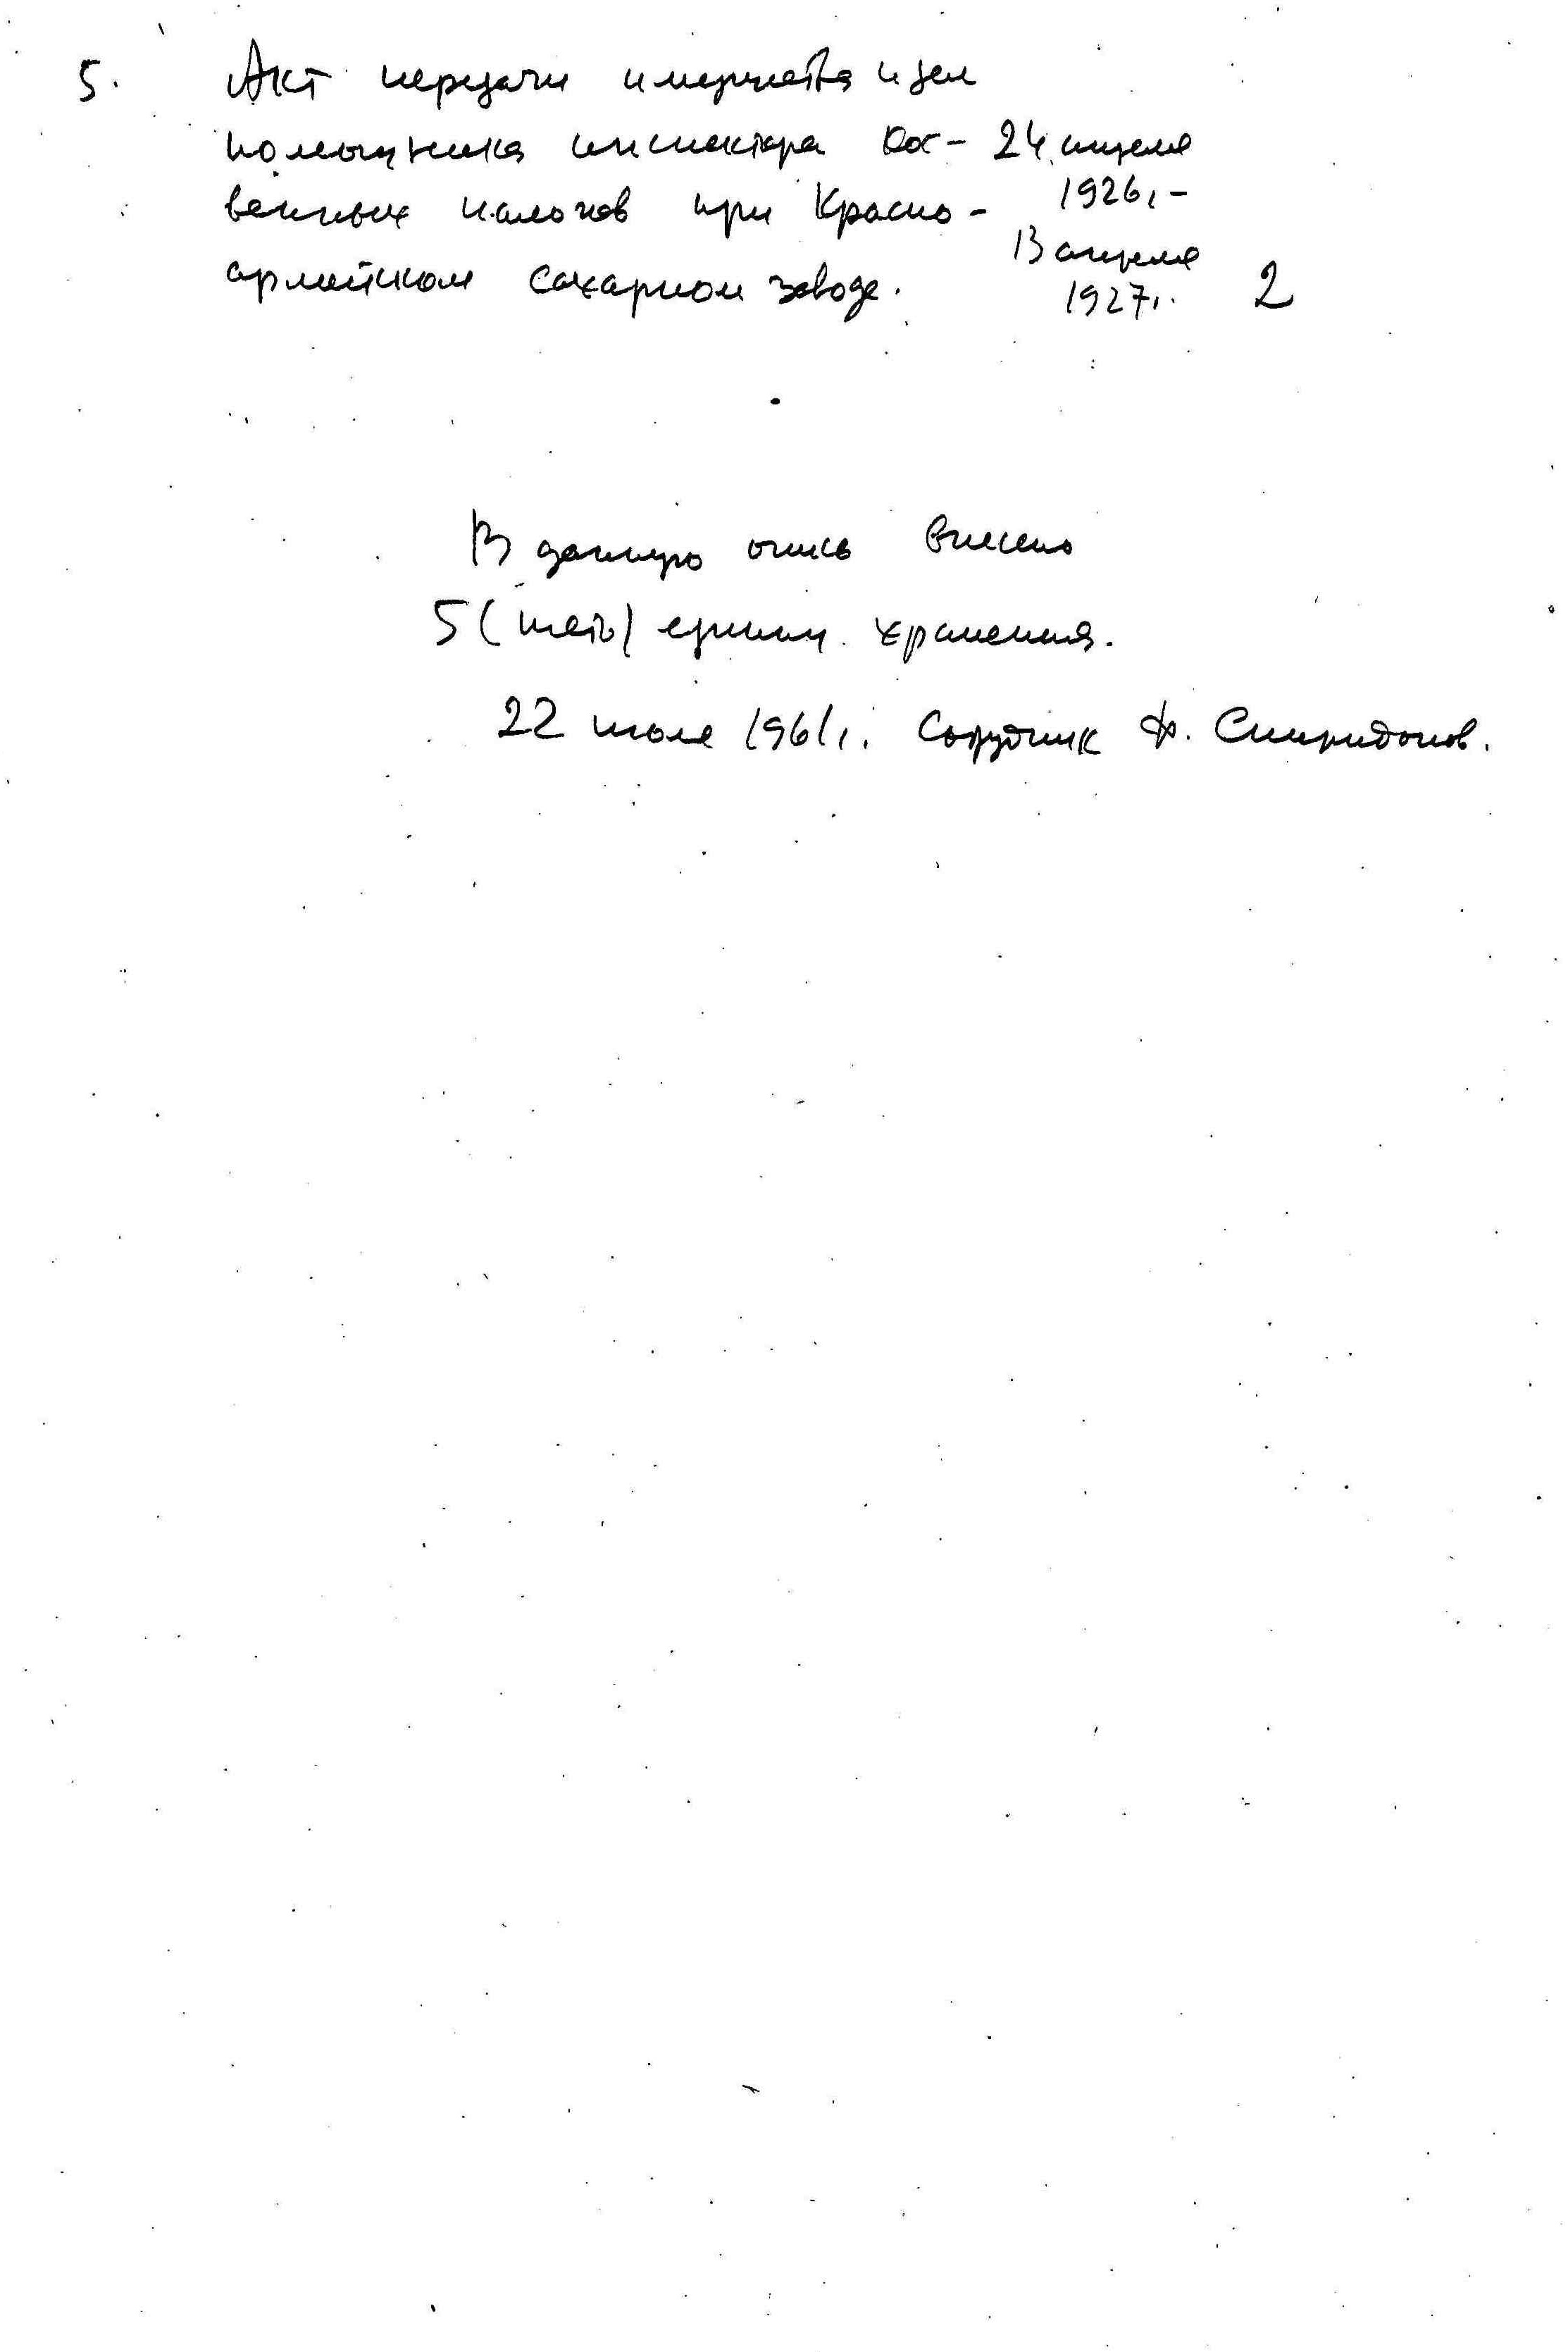 5. Акт передачи имущества и дел
помощника инспектора кос- 24 апреля
венных налогов при Красно- 1926г.-
армейском сахарном заводе. 13 апреля
1927г. 2
В данную опись внесено
5 (пять) единиц хранения.
22 июля 1961г. Сотрудник Ф. Спиридонов.